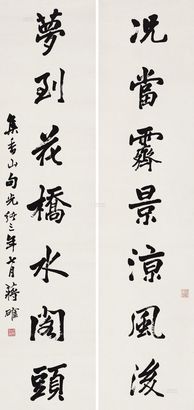 况當霽景涼風後
夢到花橋水閣頭
集香山句光緒三年七月蔣確